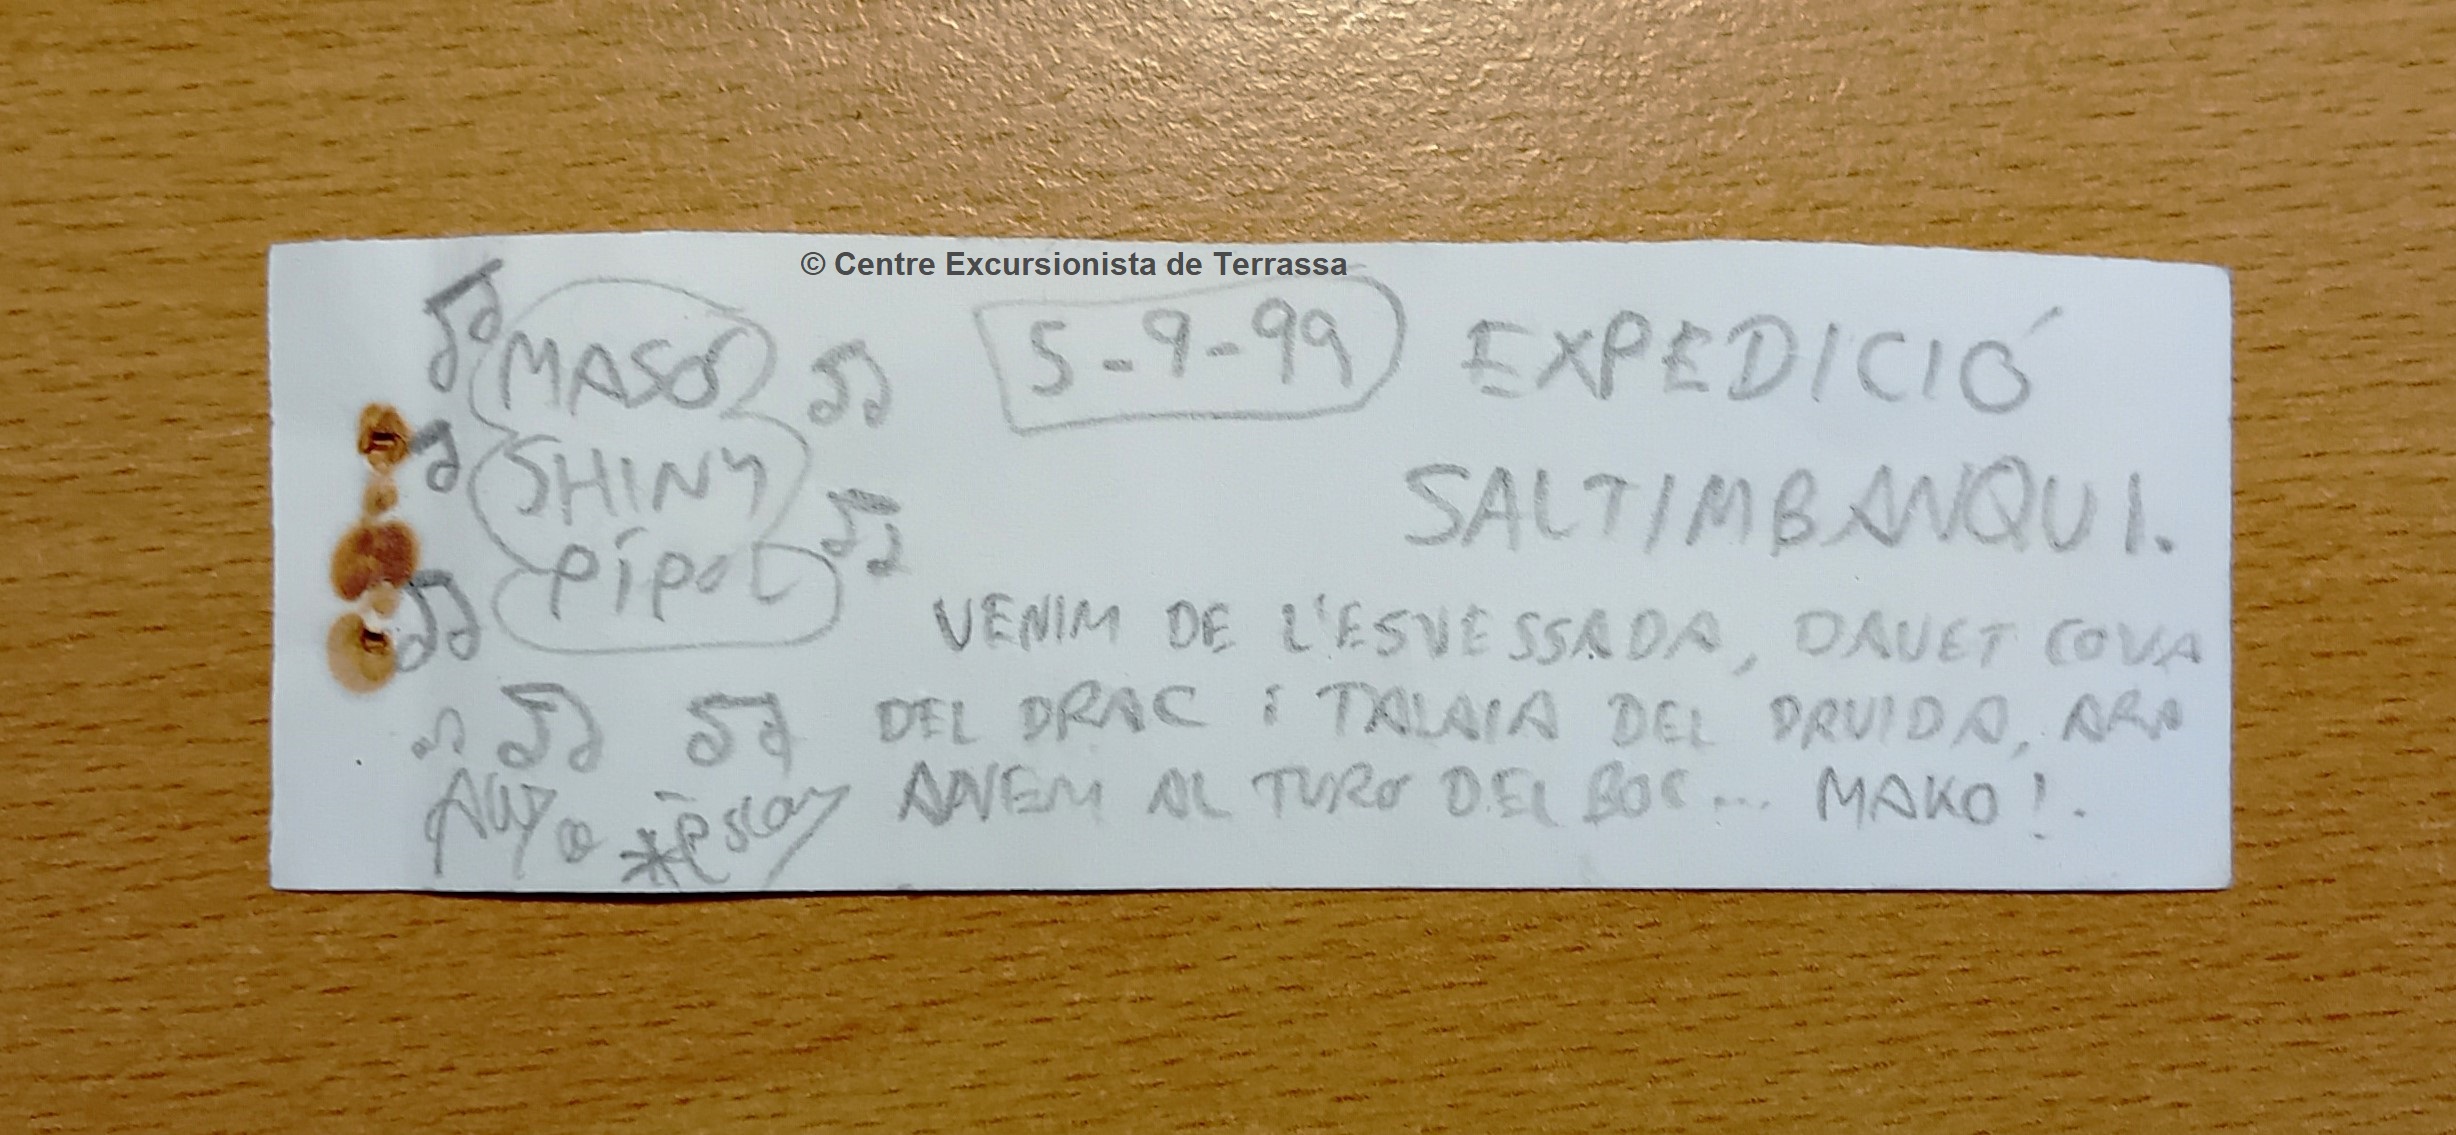 © Centre Excursionista de Terrassa
MASO
SHINY
pípol
5-9-99
EXPEDICIÓ
SALTIMBANQUI.
VENIM DE L'ESVESSADA, DAVET COVA
DEL DRAC i TALAIA DEL DRUIDA, ARA
ANEM AL TURO DEL BOC... MAKO!.